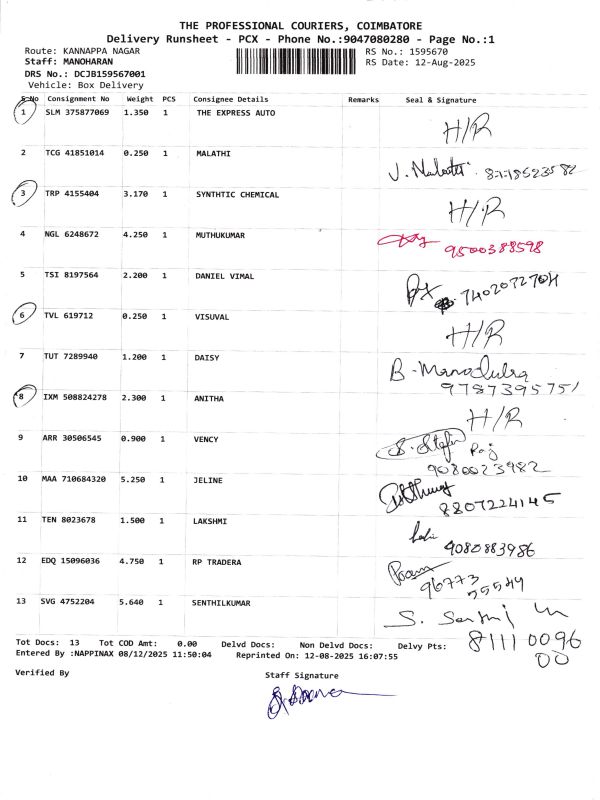 THE PROFESSIONAL COURIERS, COIMBATORE
Delivery Runsheet - PCX - Phone No.:9047080280 - Page No.:1
Route: KANNAPPA NAGAR RS No.: 1595670
Staff: MANOHARAN RS Date: 12-Aug-2025
DRS No.: DCJB159567001
Vehicle: Box Delivery
S.No Consignment No Weight PCS Consignee Details Remarks Seal & Signature
1 SLM 375877069 1.350 1 THE EXPRESS AUTO H/R
2 TCG 41851014 0.250 1 MALATHI J.
3 TRP 4155404 3.170 1 SYNTHTIC CHEMICAL H/R
4 NGL 6248672 4.250 1 MUTHUKUMAR
9500388598
5 TSI 8197564 2.200 1 DANIEL VIMAL
7402072704
6 TVL 619712 0.250 1 VISUVAL H/R
7 TUT 7289940 1.200 1 DAISY B.
9787395751
8 IXM 508824278 2.300 1 ANITHA H/R
9 ARR 30506545 0.900 1 VENCY
9080023982
10 MAA 710684320 5.250 1 JELINE
8807224145
11 TEN 8023678 1.500 1 LAKSHMI
9080883986
12 EDQ 15096036 4.750 1 RP TRADERA
96773
55549
13 SVG 4752204 5.640 1 SENTHILKUMAR S.
Tot Docs: 13 Tot COD Amt: 0.00 Delvd Docs: Non Delvd Docs: Delvy Pts: 81110096
00
Entered By :NAPPINAX 08/12/2025 11:50:04 Reprinted On: 12-08-2025 16:07:55
Verified By Staff Signature